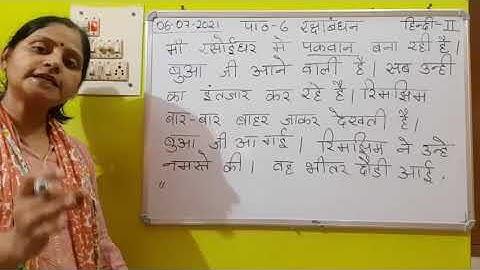 06-07-2021 पाठ-6 रक्षाबंधन हिन्दी-II
माँ रसोईघर में पकवान बना रही है।
बुआ जी आने वाली हैं। सब उन्हीं
का इंतजार कर रहे हैं। रिमझिम
बार-बार बाहर जाकर देखती है।
बुआ जी आ गई। रिमझिम ने उन्हें
नमस्ते की। वह भीतर दौड़ी आई.